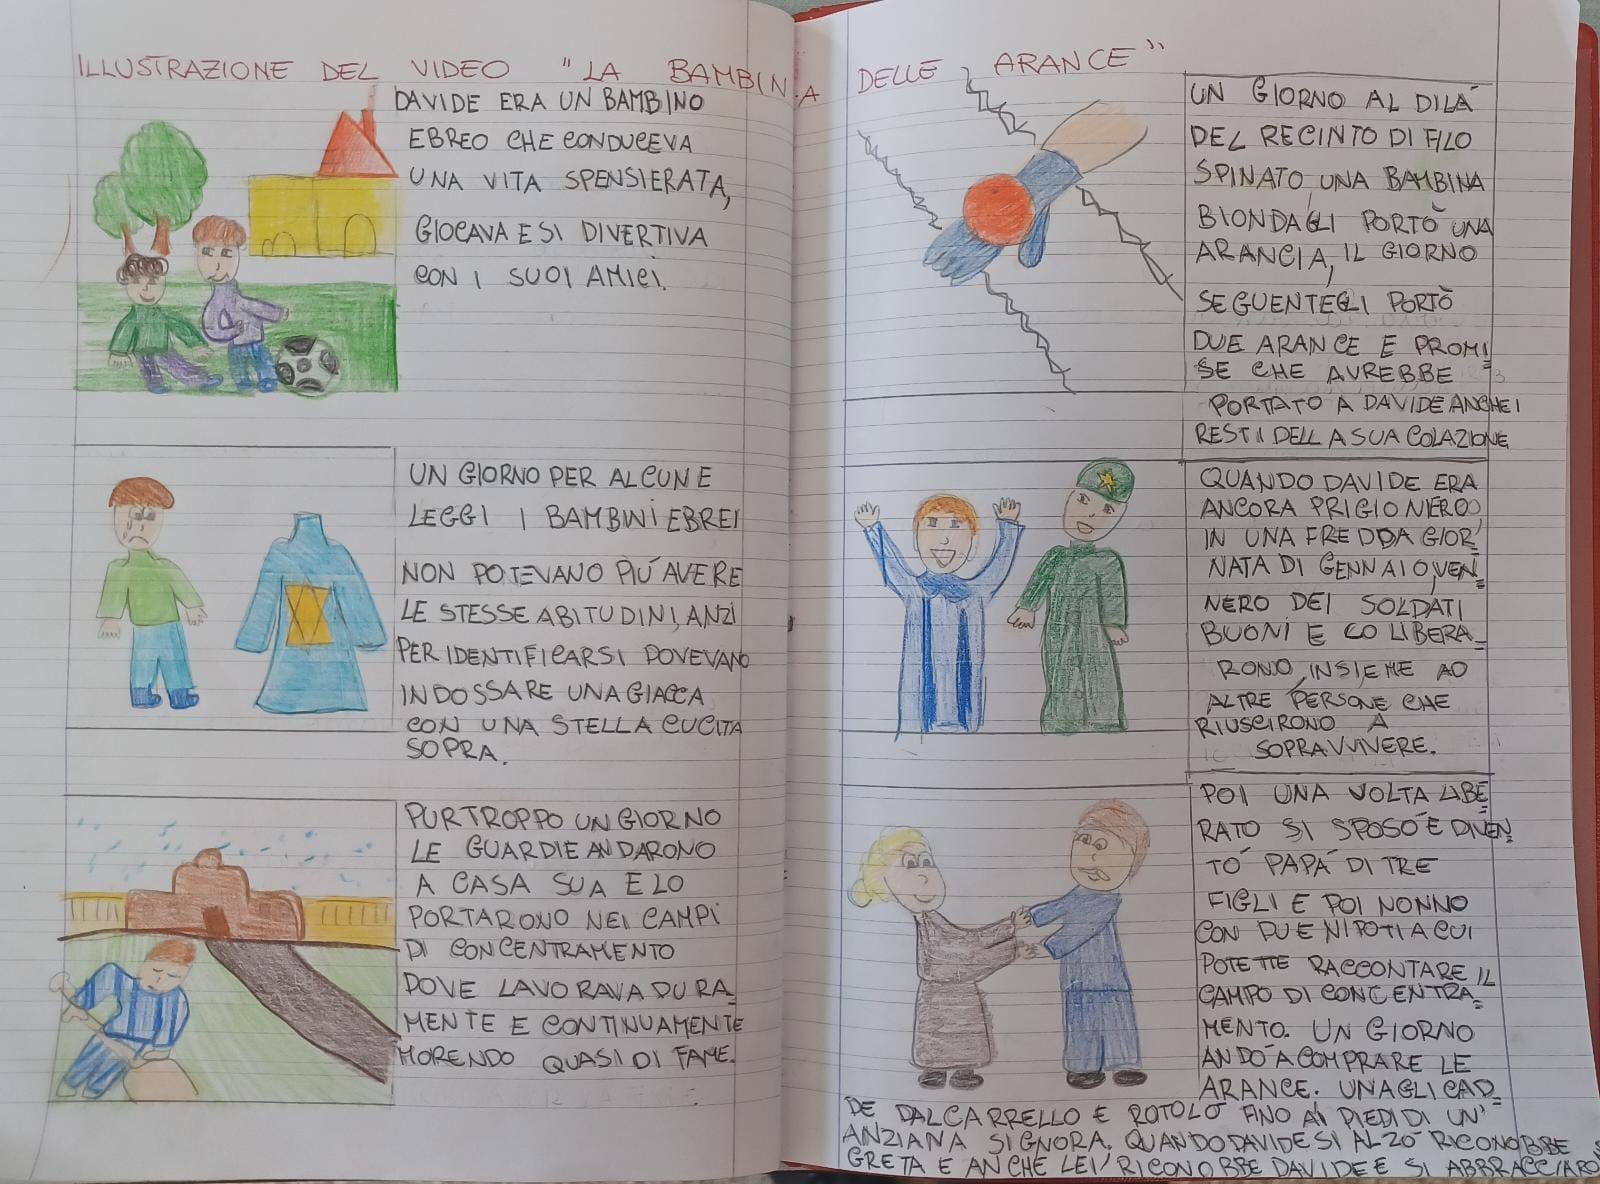 ILLUSTRAZIONE DEL VIDEO "LA BAMBINA DELLE ARANCE"
DAVIDE ERA UN BAMBINO
EBREO CHE CONDUCEVA
UNA VITA SPENSIERATA,
GIOCAVA E SI DIVERTIVA
CON I SUOI AMICI.
UN GIORNO PER ALCUNE
LEGGI I BAMBINI EBREI
NON POTEVANO PIÚ AVERE
LE STESSE ABITUDINI, ANZI
PER IDENTIFICARSI DOVEVANO
INDOSSARE UNA GIACCA
CON UNA STELLA CUCITA
SOPRA.
PURTROPPO UN GIORNO
LE GUARDIE ANDARONO
A CASA SUA E LO
PORTARONO NEI CAMPI
DI CONCENTRAMENTO
DOVE LAVORAVA DURA_
MENTE E CONTINUAMENTE
MORENDO QUASI DI FAME.
UN GIORNO AL DILÁ
DEL RECINTO DI FILO
SPINATO, UNA BAMBINA
BIONDA GLI PORTÒ UNA
ARANCIA, IL GIORNO
SEGUENTE GLI PORTÒ
DUE ARANCE E PROMI=
SE CHE AVREBBE
PORTATO A DAVIDE ANCHE I
RESTI DELLA SUA COLAZIONE
QUANDO DAVIDE ERA
ANCORA PRIGIONIERO
IN UNA FREDDA GIOR=
NATA DI GENNAIO, VEN=
NERO DEI SOLDATI
BUONI E LO LIBERA_
RONO, INSIEME AD
ALTRE PERSONE CHE
RIUSCIRONO A
SOPRAVVIVERE.
POI UNA VOLTA LIBE=
RATO SI SPOSÓ E DIVEN=
TÓ PAPÁ DI TRE
FIGLI E POI NONNO
CON DUE NIPOTI A CUI
POTETTE RACCONTARE IL
CAMPO DI CONCENTRA=
MENTO. UN GIORNO
ANDÓ A COMPRARE LE
ARANCE. UNA GLI CAD=
DE DAL CARRELLO E ROTOLÓ FINO AI PIEDI DI UN'
ANZIANA SIGNORA. QUANDO DAVIDE SI ALZÓ RICONOBBE
GRETA E ANCHE LEI RICONOBBE DAVIDE E SI ABBRACCIARO